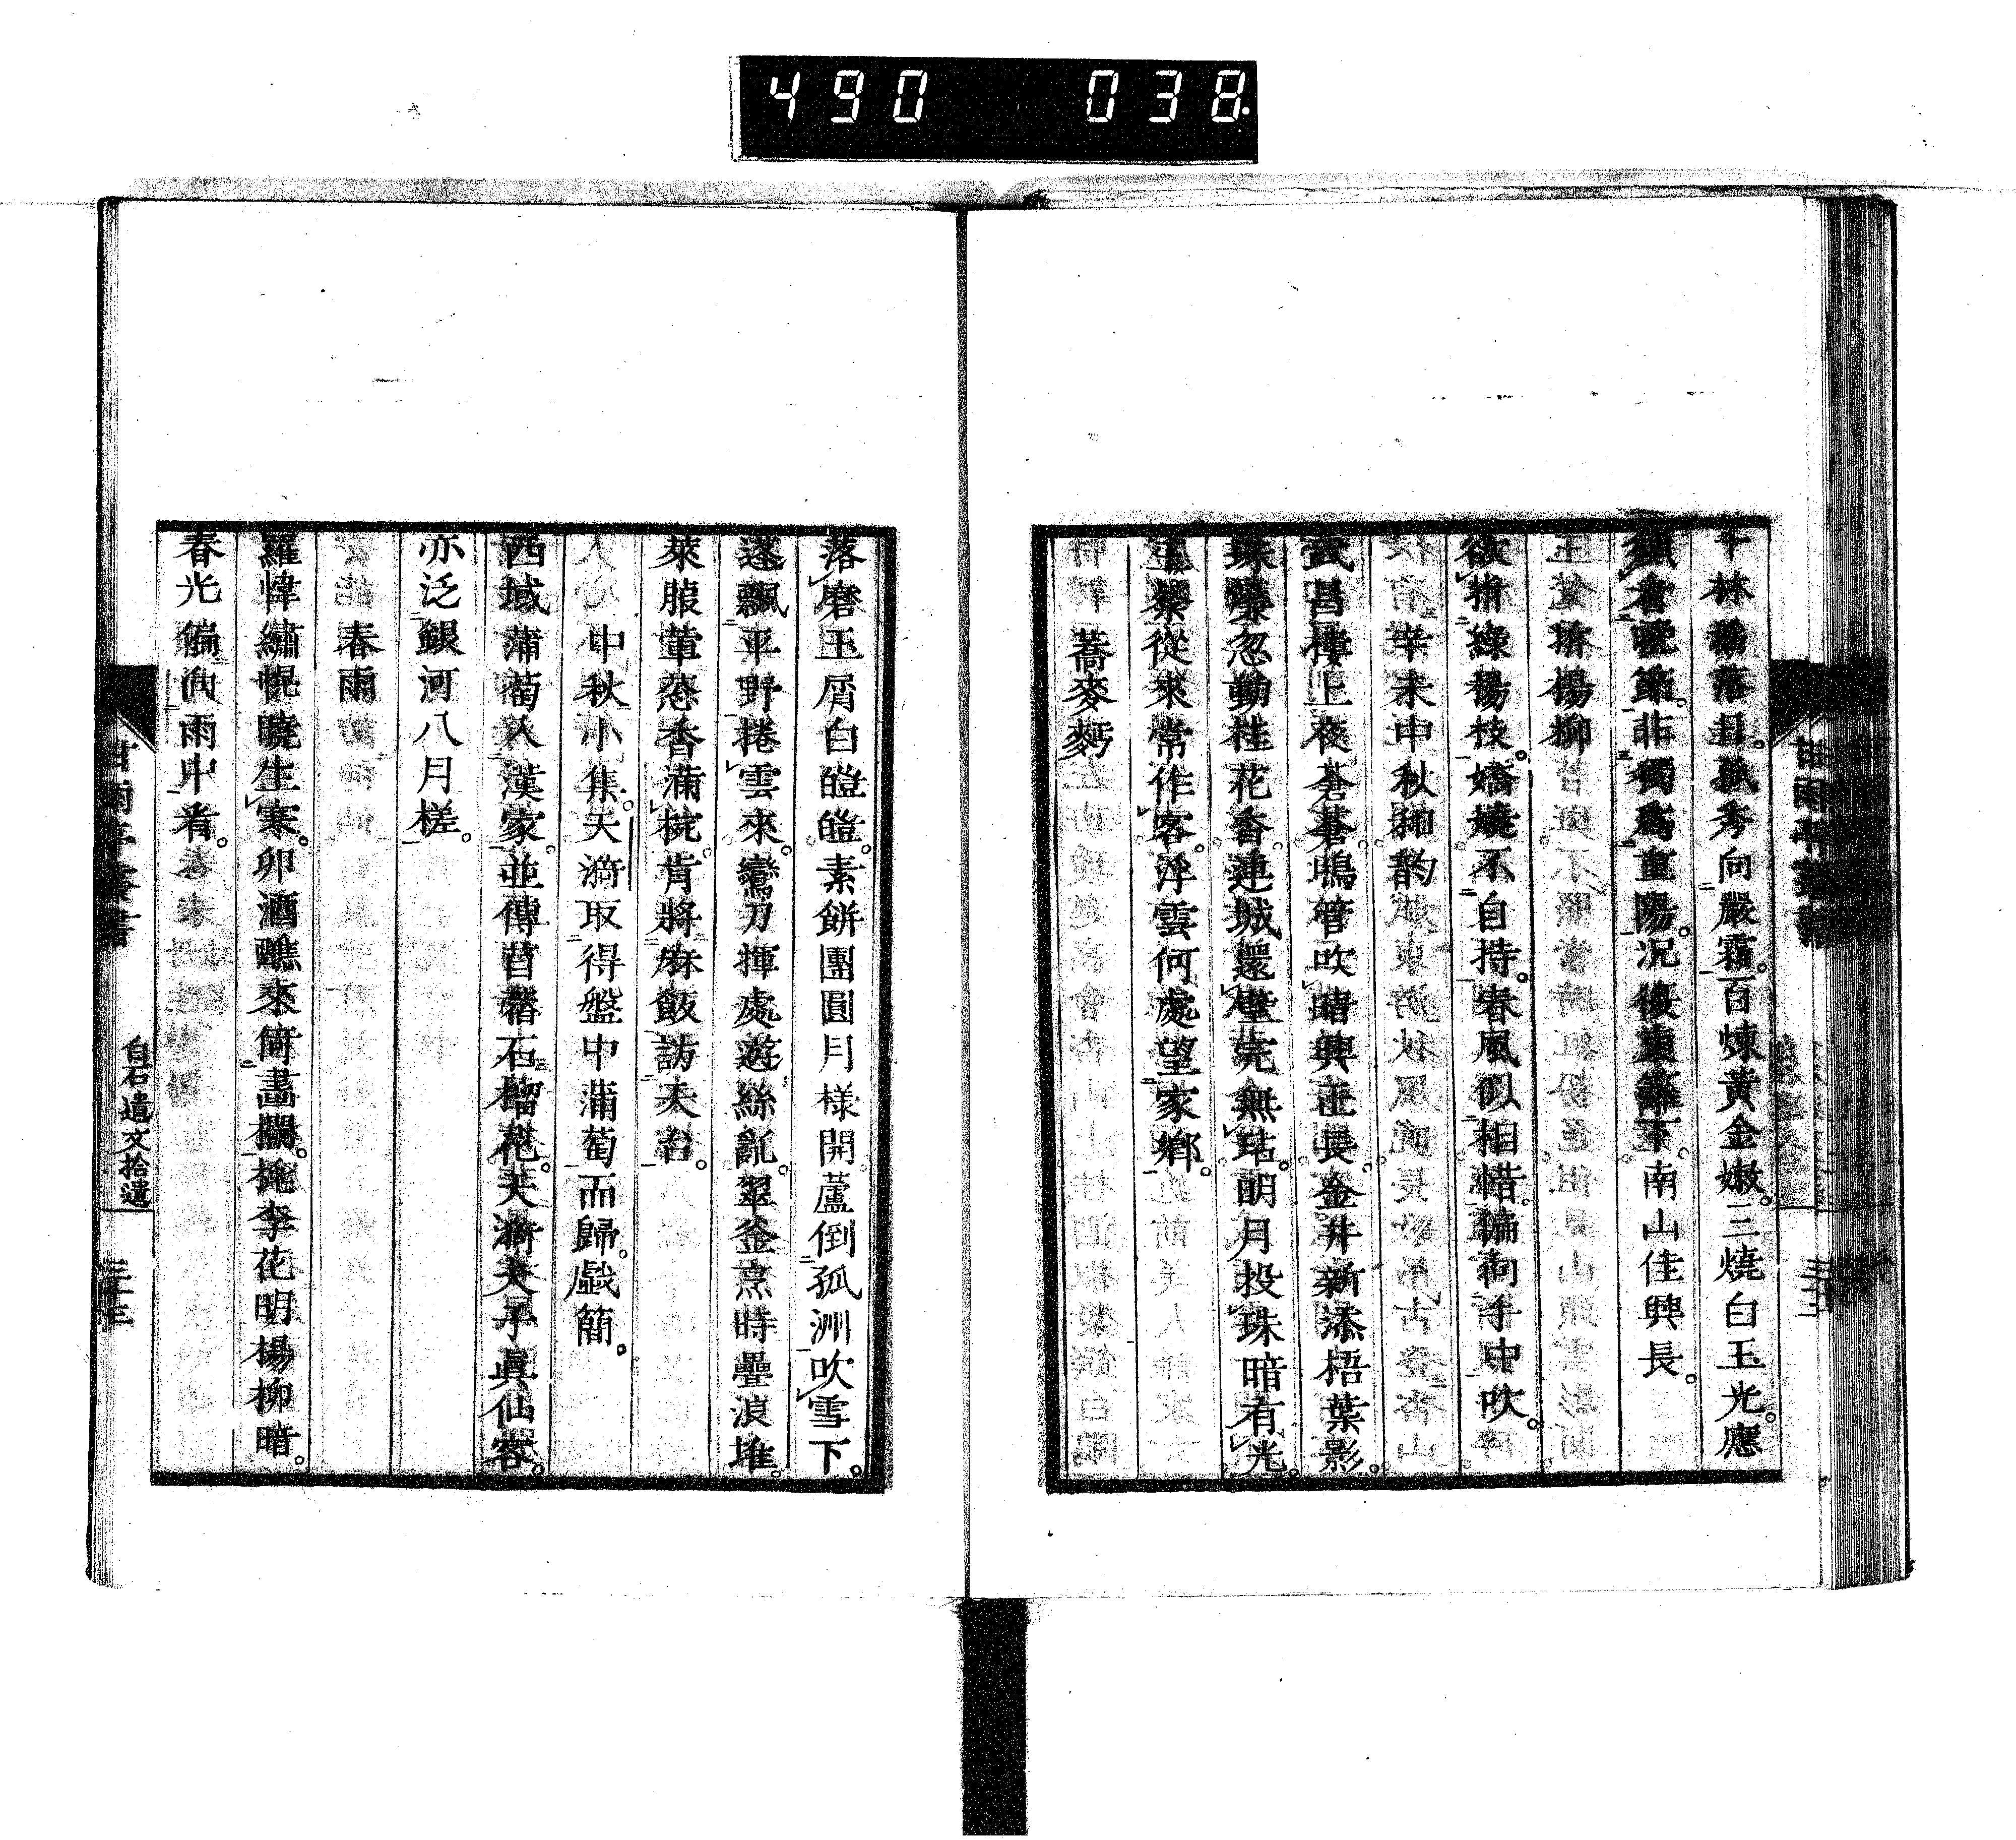 490 038
千林搖落日。孤秀向嚴霜。百煉黃金嫩。三燒白玉光。應
須看晚節。非獨爲重陽。況復東籬下。南山佳興長。
折楊柳
欲折綠楊枝。嬌嬈不自持。春風似相惜。偏向手中吹。
辛未中秋 韵
武昌樓上夜蒼蒼。鳴管吹晴興正長。金井新添梧葉影。
珠簾忽動桂花香。連城還璧荒無玷。明月投珠暗有光。
從來常作客。浮雲何處望家鄉。
蕎麥麪
落磨玉屑白皚皚。素餅團圓月樣開。蘆倒孤洲吹雪下。
蓬飄平野捲雲來。鸞刀揮處遊絲亂。翠釜烹時疊浪堆。
萊服葷葱香滿椀。肯將麻飯訪天台。
中秋小集。天漪取得盤中蒲萄而歸。戲簡。
西域蒲萄入漢家。並傳苜蓿石榴花。天漪天子眞仙客。
亦泛銀河八月槎。
春雨
羅幃繡幌曉生寒。卯酒醮來倚畫欄。桃李花明楊柳暗。
春光偏向雨中看。
甘雨亭叢書
白石遺文拾遺
三十三